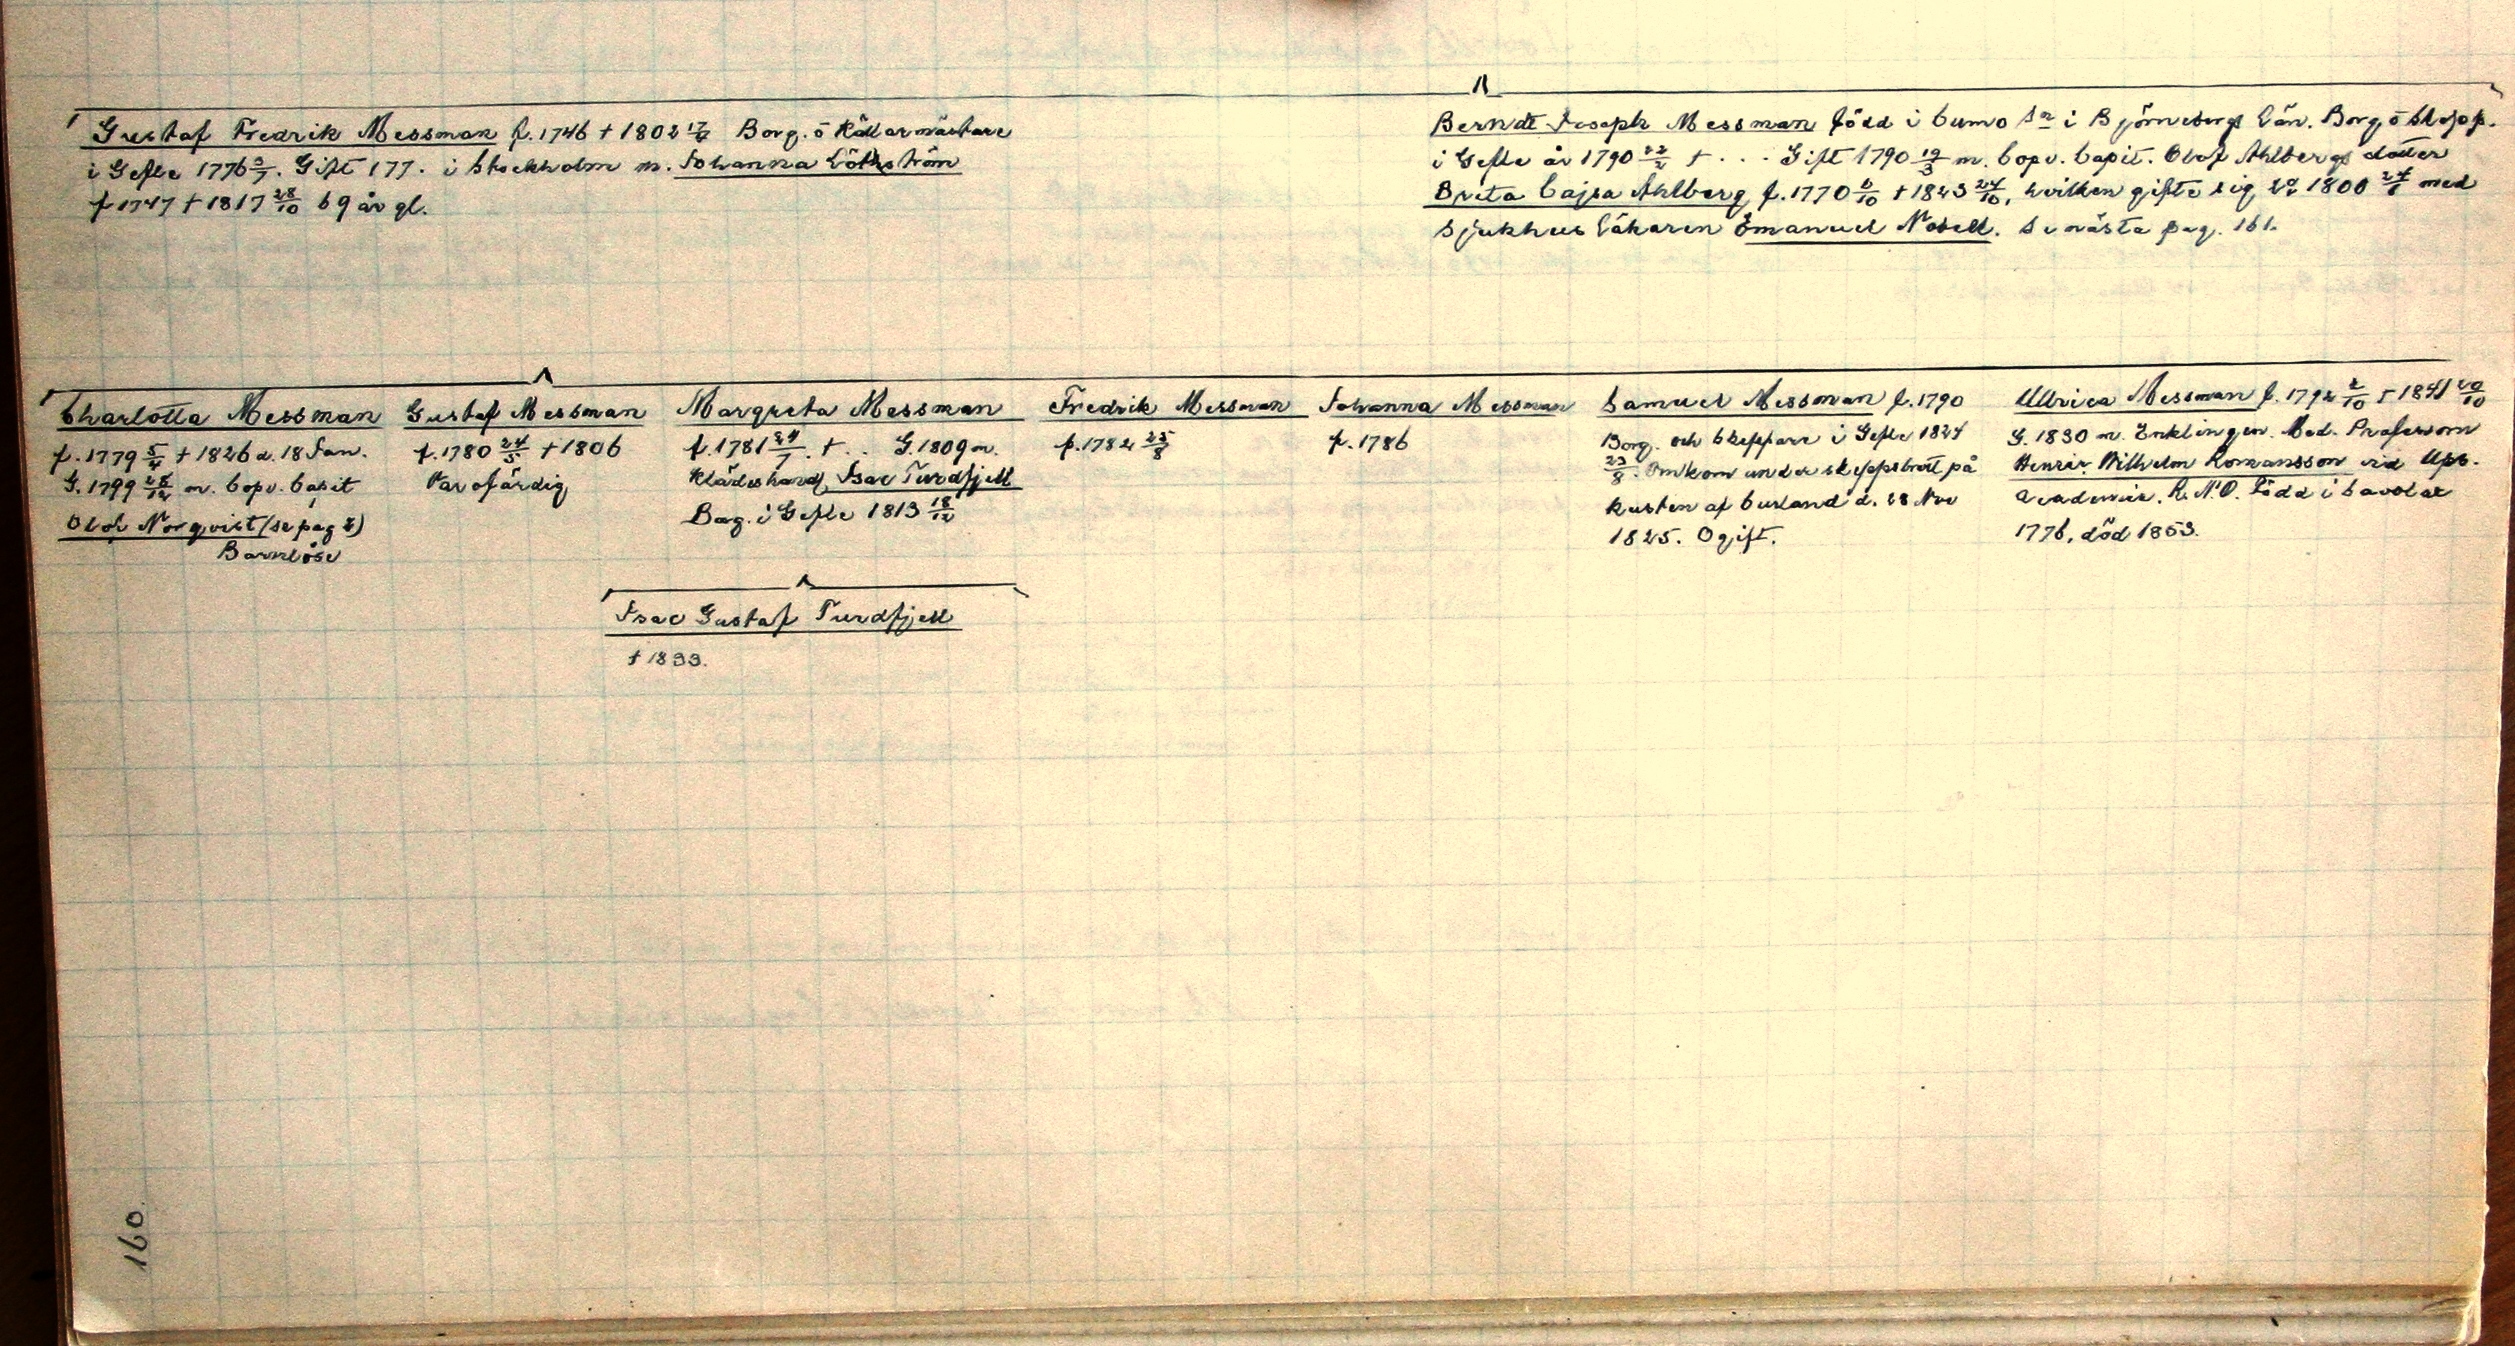 Gustaf Fredrik Messman f. 1746 † 1802 17/4 Borg. o Källarmästare
i Gefle 1776 3/7. Gift 177. i Stockholm m. Johanna Löthström
f 1747 † 1817 28/10 69 år gl.
Berndt Joseph Messman född i Cumo Sn i Björneborgs Län. Borg o Skepp.
i Gefle år 1790 22/2 † . . . Gift 1790 19/3 m. Copv. Capit. Olof Ahlbergs dotter
Brita Cajsa Ahlberg f. 1770 6/10 † 1823 24/10, hvilken gifte sig 2o 1800 24/6 med
Sjukhus Läkaren Emanuel Nobell. Se nästa pag. 161.
Charlotta Messman
f. 1779 5/4 † 1826 d. 18 Jan.
G. 1799 28/12 m. Copv. Capit
Olof Norqvist (se pag 8)
Barnlöse
Gustaf Messman
f. 1780 24/5 † 1806
Var ofärdig
Margreta Messman
f. 1781 24/7. † . . G. 1809 m.
Klädeshandl Isac Turdfjell
Borg. i Gefle 1813 18/12
Fredrik Messman
f. 1782 25/8
Johanna Messman
f. 1786
Samuel Messman f. 1790
Borg. och Skeppare i Gefle 1824
23/8. Omkom under skeppsbrott på
kusten af Curland d. 28 Nov
1825. Ogift.
Ulrica Messman f. 1792 2/10 † 1841 20/10
G. 1830 m. Enklingen. Med. Professorn
Henric Wilhelm Romansson vid Ups.
Academie. R.N.O. Född i Savolax
1776, död 1853.
Isac Gustaf Turdfjell
† 1833.
160.